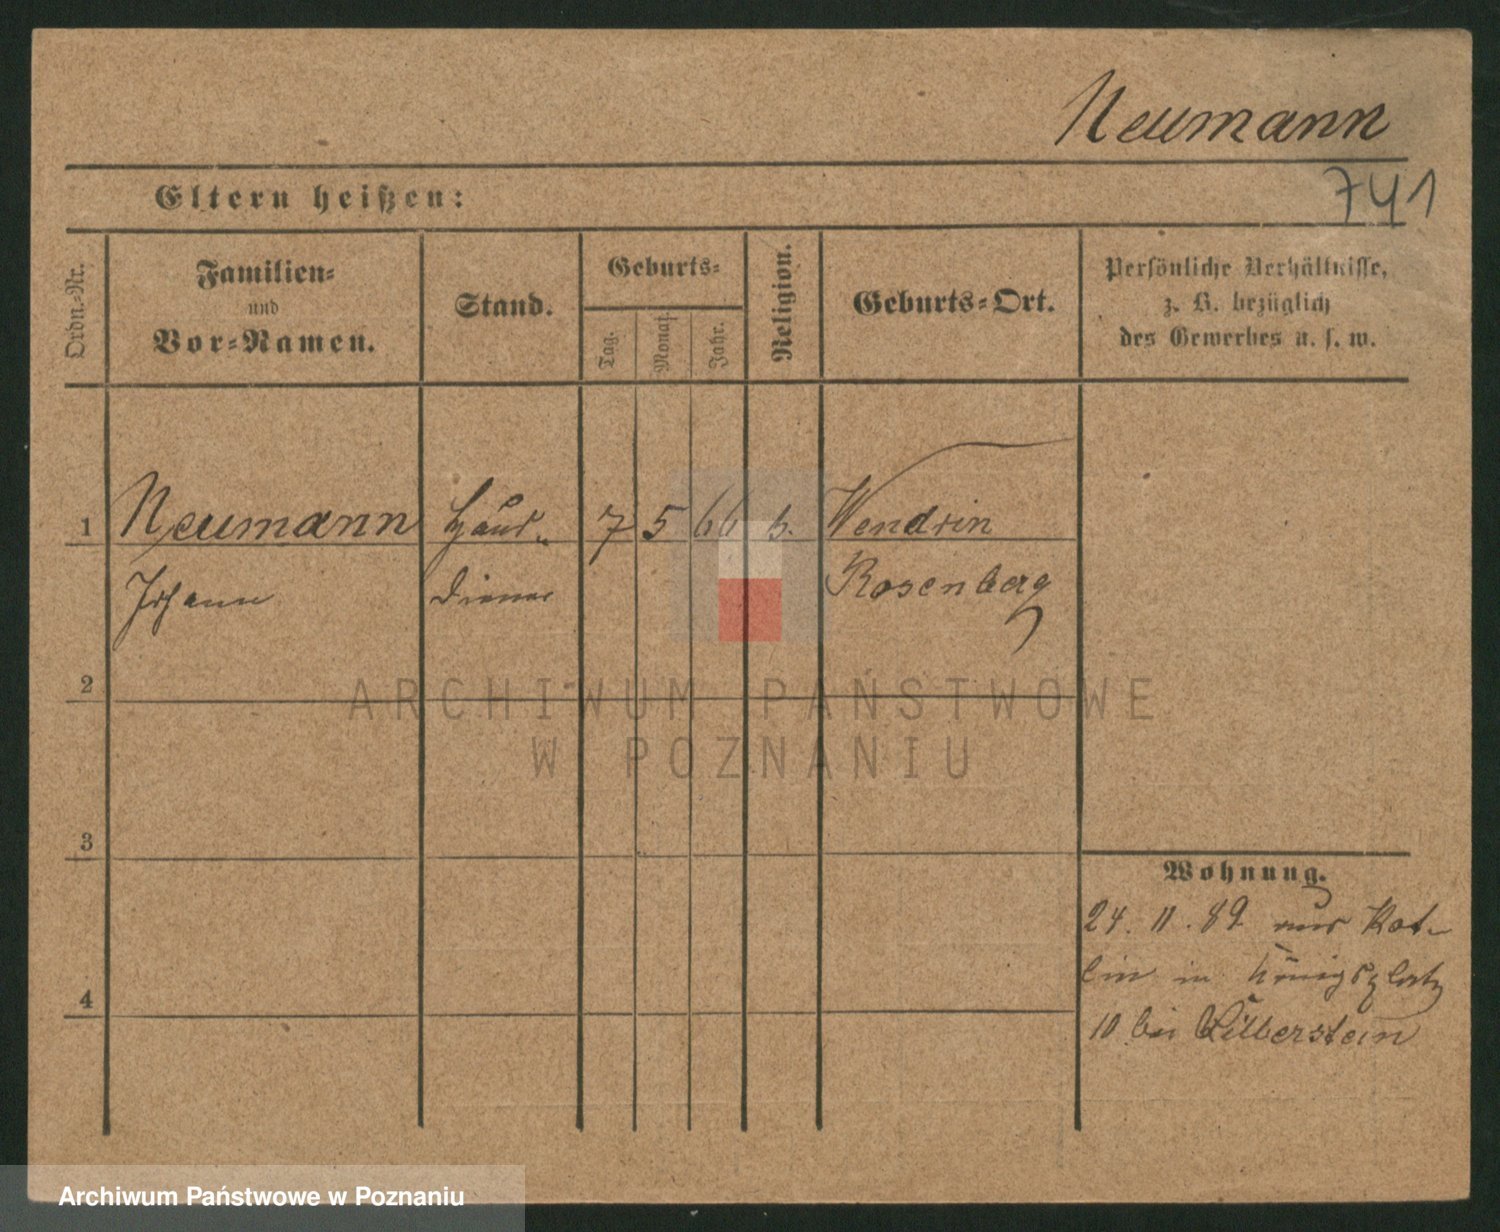 Neumann
741
Eltern heißen:
Ordn.-Nr.
Familien-
und
Vor-Namen.
Stand.
Geburts-
Tag.
Monat.
Jahr.
Religion.
Geburts-Ort.
Persönliche Verhältnisse,
z. B. bezüglich
des Gewerbes u. s. w.
1
Neumann
Haus-
7
5
66
k.
Wendrin
Johann
diener
Rosenberg
2
ARCHIWUM PAŃSTWOWE
W POZNANIU
3
Wohnung.
24. 11. 89. aus
in Königsplatz
4
10 bei Silberstein
Archiwum Państwowe w Poznaniu